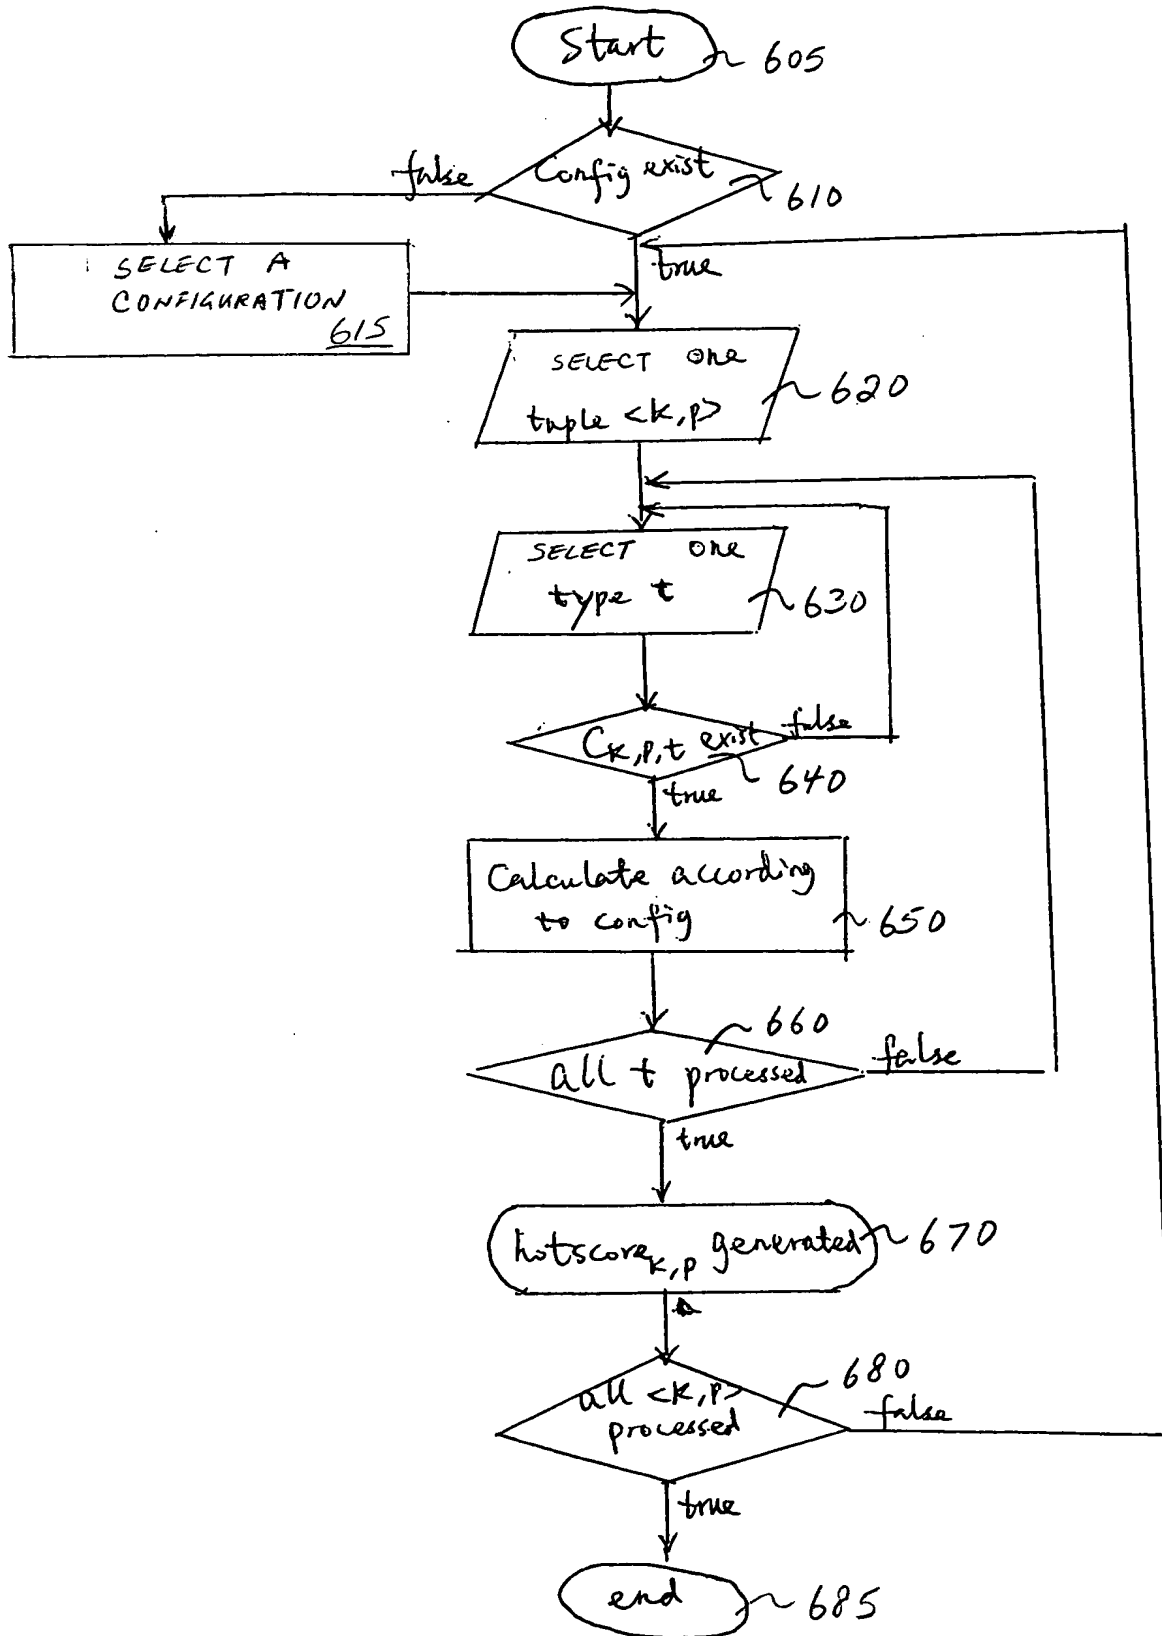 Start
605
Config exist
false
610
true
SELECT A
CONFIGURATION
615
SELECT one
tuple <k,p>
620
SELECT one
type t
630
Ck,p,t exist
false
640
true
Calculate according
to config
650
660
all t processed
false
true
hotscorek,p generated
670
680
all <k,p>
processed
false
true
end
685